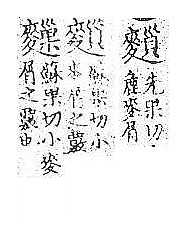 䴹先果切
麥屑
䴹蘇果切小
麥屑之覈
䴹蘇果切小麥
屑之覈由